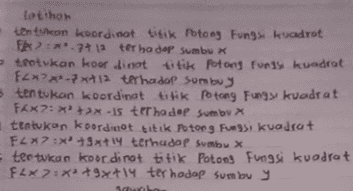 latihan
tentukan koordinat titik Potong Fungsi kuadrat
F<x>=x²-7+12 terhadap sumbu x
tentukan koor dinat titik Potong Fungsi kuadrat
F<x>=x²-7x+12 terhadap sumbu y
tentukan koordinat titik Potong Fungsi kuadrat
F<x>=x²+2x-15 terhadap sumbu x
tentukan koordinat titik Potong Fungsi kuadrat
F<x>=x²+9x+14 terhadap sumbu x
tentukan koordinat titik Potong Fungsi kuadrat
F<x>=x²+9x+14 terhadap sumbu y